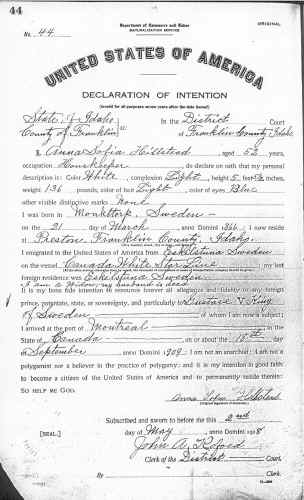 44
ORIGINAL
Department of Commerce and Labor
NATURALIZATION SERVICE
No. 44
UNITED STATES OF AMERICA
DECLARATION OF INTENTION
(Invalid for all purposes seven years after the date hereof)
State of Idaho
County of Franklin ss:
In the District Court
of Franklin County Idaho
I, Anna Sofia Hillstead, aged 52 years,
occupation Housekeeper, do declare on oath that my personal
description is: Color White, complexion Light, height 5 feet inches,
weight 136 pounds, color of hair Light, color of eyes Blue
other visible distinctive marks None
I was born in Monktorp, Sweden
on the 21 day of March, anno Domini 1866; I now reside
at Preston, Franklin County, Idaho.
I emigrated to the United States of America from Eskilstuna Sweden
on the vessel Canada White Star Line; my last
foreign residence was Eskilstuna Sweden
I am a Widow, my husband is dead
It is my bona fide intention to renounce forever all allegiance and fidelity to any foreign
prince, potentate, state, or sovereignty, and particularly to Gustave V King
of Sweden, of whom I am now a subject;
I arrived at the port of Montreal, in the
State of Canada, on or about the day
of September, anno Domini 1909; I am not an anarchist; I am not a
polygamist nor a believer in the practice of polygamy; and it is my intention in good faith
to become a citizen of the United States of America and to permanently reside therein:
SO HELP ME GOD.
Anna Sofia
Subscribed and sworn to before me this 2nd
[SEAL.] day of May, anno Domini 1918
John A.
Clerk of the District Court.
By , Clerk.